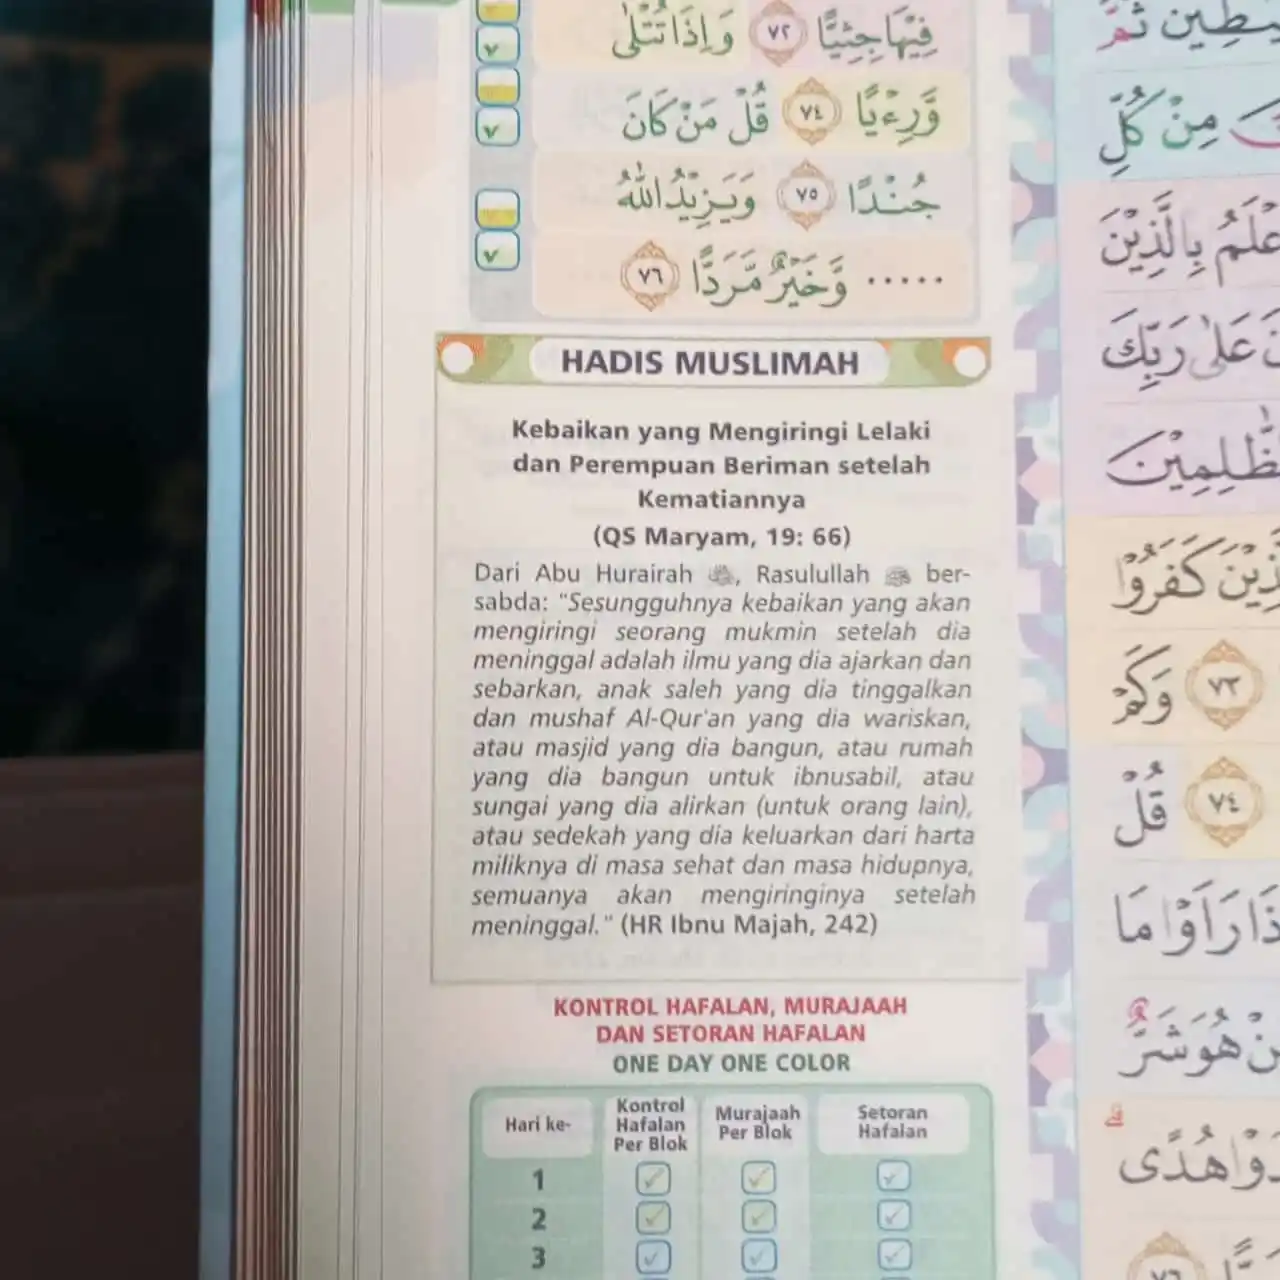 فِيْهَا جِثِيًّا ٧٢ وَاِذَا تُتْلٰى
وَّرِءْيًا ٧٤ قُلْ مَنْ كَانَ
جُنْدًا ٧٥ وَيَزِيْدُ اللّٰهُ
..... وَّخَيْرٌ مَّرَدًّا ٧٦
HADIS MUSLIMAH
Kebaikan yang Mengiringi Lelaki
dan Perempuan Beriman setelah
Kematiannya
(QS Maryam, 19: 66)
Dari Abu Hurairah, Rasulullah ﷺ ber-
sabda: "Sesungguhnya kebaikan yang akan
mengiringi seorang mukmin setelah dia
meninggal adalah ilmu yang dia ajarkan dan
sebarkan, anak saleh yang dia tinggalkan
dan mushaf Al-Qur'an yang dia wariskan,
atau masjid yang dia bangun, atau rumah
yang dia bangun untuk ibnusabil, atau
sungai yang dia alirkan (untuk orang lain),
atau sedekah yang dia keluarkan dari harta
miliknya di masa sehat dan masa hidupnya,
semuanya akan mengiringinya setelah
meninggal." (HR Ibnu Majah, 242)
KONTROL HAFALAN, MURAJAAH
DAN SETORAN HAFALAN
ONE DAY ONE COLOR
Hari ke-
Kontrol
Hafalan
Per Blok
Murajaah
Per Blok
Setoran
Hafalan
1
2
3
مِنْ كُلِّ
بِالَّذِيْنَ
عَلٰى رَبِّكَ
كَفَرُوْا
٧٣ وَكَمْ
٧٤ قُلْ
مَا
هُوَ شَرٌّ
هُدًى
٧٦